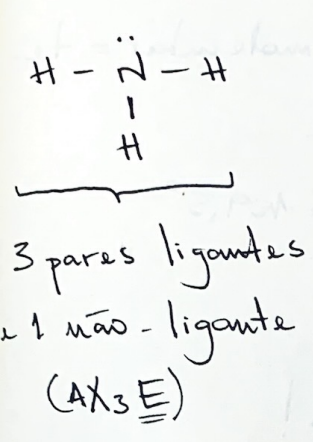 H - N̈ - H
|
H
3 pares ligantes
e 1 não-ligante
(AX₃E)